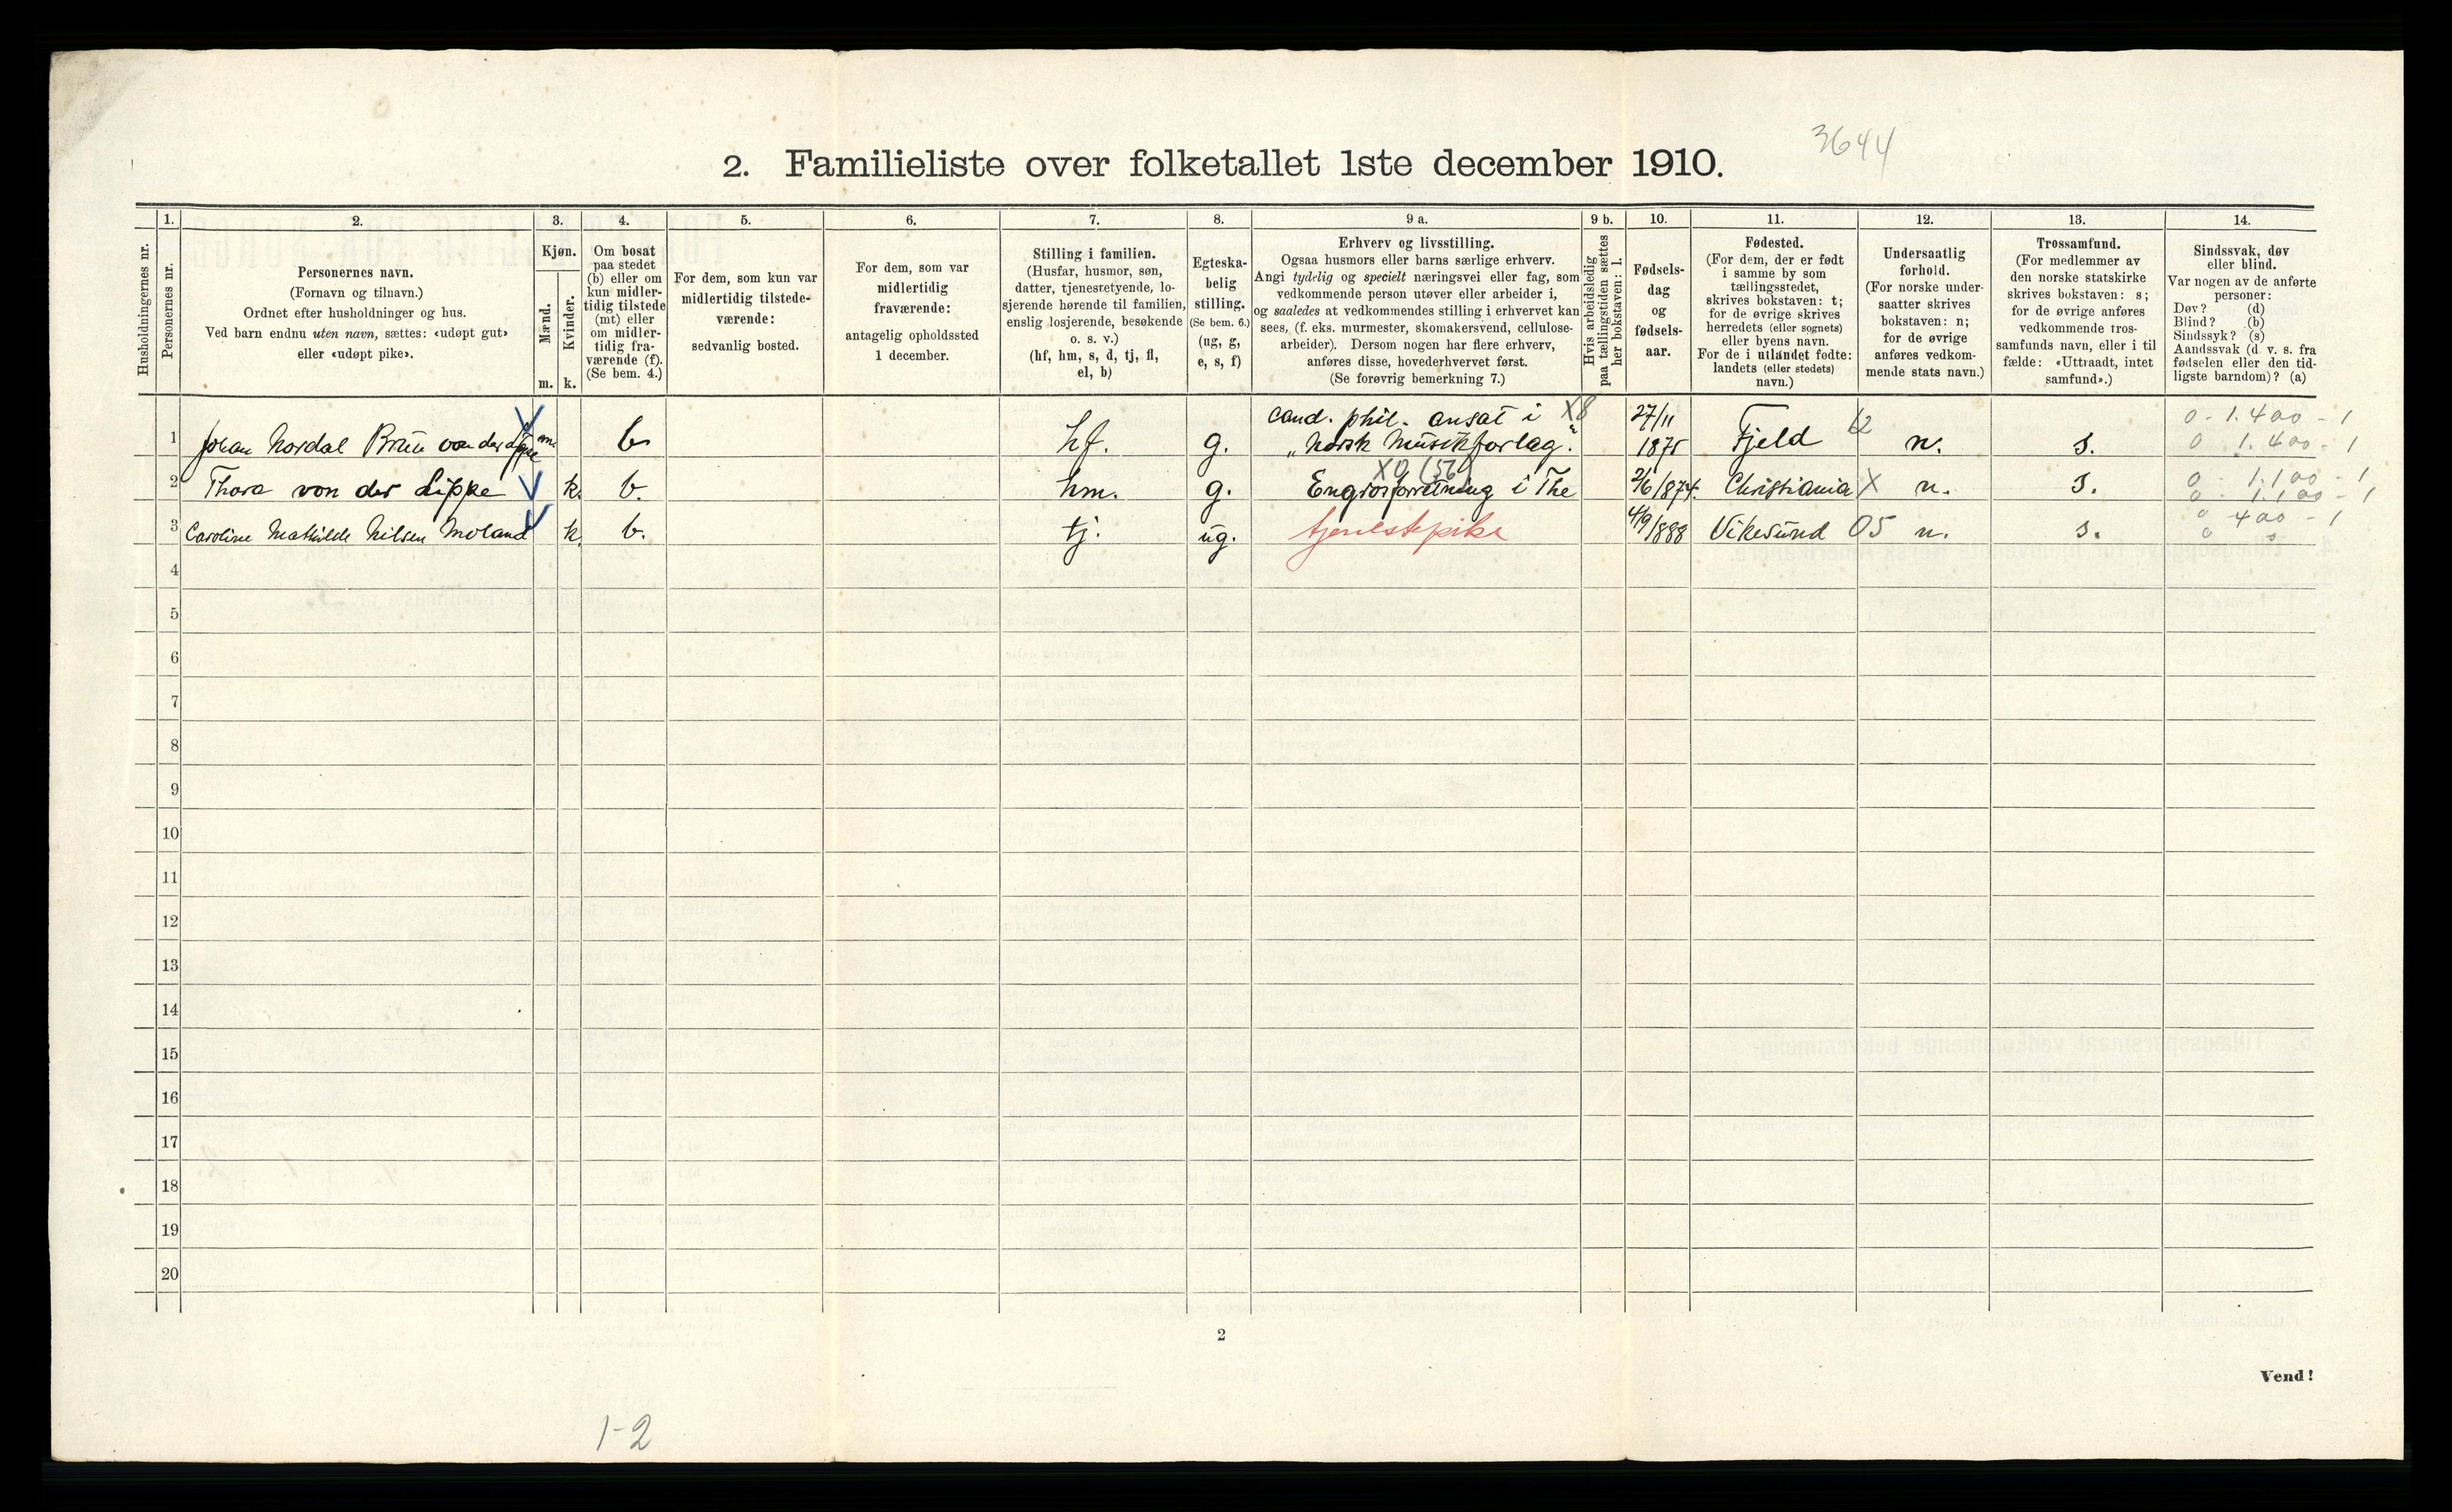 3644
2. Familieliste over folketallet 1ste december 1910.
Husholdningernes nr.
1.
Personernes nr.
2.
Personernes navn.
(Fornavn og tilnavn.)
Ordnet efter husholdninger og hus.
Ved barn endnu uten navn, sættes: «udøpt gut»
eller «udøpt pike».
3.
Kjøn.
Mænd.
Kvinder.
m.
k.
4.
Om bosat
paa stedet
(b) eller om
kun midler-
tidig tilstede
(mt) eller
om midler-
tidig fra-
værende (f).
(Se bem. 4.)
5.
For dem, som kun var
midlertidig tilstede-
værende:
sedvanlig bosted.
6.
For dem, som var
midlertidig
fraværende:
antagelig opholdssted
1 december.
7.
Stilling i familien.
(Husfar, husmor, søn,
datter, tjenestetyende, lo-
sjerende hørende til familien,
enslig losjerende, besøkende
o. s. v.)
(hf, hm, s, d, tj, fl,
el, b)
8.
Egteska-
belig
stilling.
(Se bem. 6.)
(ug, g,
e, s, f)
9 a.
Erhverv og livsstilling.
Ogsaa husmors eller barns særlige erhverv.
Angi tydelig og specielt næringsvei eller fag, som
vedkommende person utøver eller arbeider i,
og saaledes at vedkommendes stilling i erhvervet kan
sees, (f. eks. murmester, skomakersvend, cellulose-
arbeider). Dersom nogen har flere erhverv,
anføres disse, hovederhvervet først.
(Se forøvrig bemerkning 7.)
9 b.
Hvis arbeidsledig
paa tællingstiden sættes
her bokstaven: l.
10.
Fødsels-
dag
og
fødsels-
aar.
11.
Fødested.
(For dem, der er født
i samme by som
tællingsstedet,
skrives bokstaven: t;
for de øvrige skrives
herredets (eller sognets)
eller byens navn.
For de i utlandet fødte:
landets (eller stedets)
navn.)
12.
Undersaatlig
forhold.
(For norske under-
saatter skrives
bokstaven: n;
for de øvrige
anføres vedkom-
mende stats navn.)
13.
Trossamfund.
(For medlemmer av
den norske statskirke
skrives bokstaven: s;
for de øvrige anføres
vedkommende tros-
samfunds navn, eller i til
fælde: «Uttraadt, intet
samfund».)
14.
Sindssvak, døv
eller blind.
Var nogen av de anførte
personer:
Døv? (d)
Blind? (b)
Sindssyk? (s)
Aandssvak (d. v. s. fra
fødselen eller den tid-
ligste barndom)? (a)
1 Johan Nordal Brun von der Lippe m. b. hf. g. cand. phil. ansat i X8 „Norsk Musikforlag.“ 27/11 1875 Fjeld 12 n. s. 0 - 1.400 - 1
0 1.400 - 1
2 Thora von der Lippe k. b. hm. g. X0 (56) Engrosforretning i The 2/6/874. Christiania X n. s. 0 - 1.100 - 1
0 - 1.100 - 1
3 Caroline Mathilde Nilsen Moland k. b. tj. ug. tjenestepike 4/9/888 Vikesund 05 n. s. 0 400 - 1
0 0
4
5
6
7
8
9
10
11
12
13
14
15
16
17
18
19
20
2
Vend!
1-2